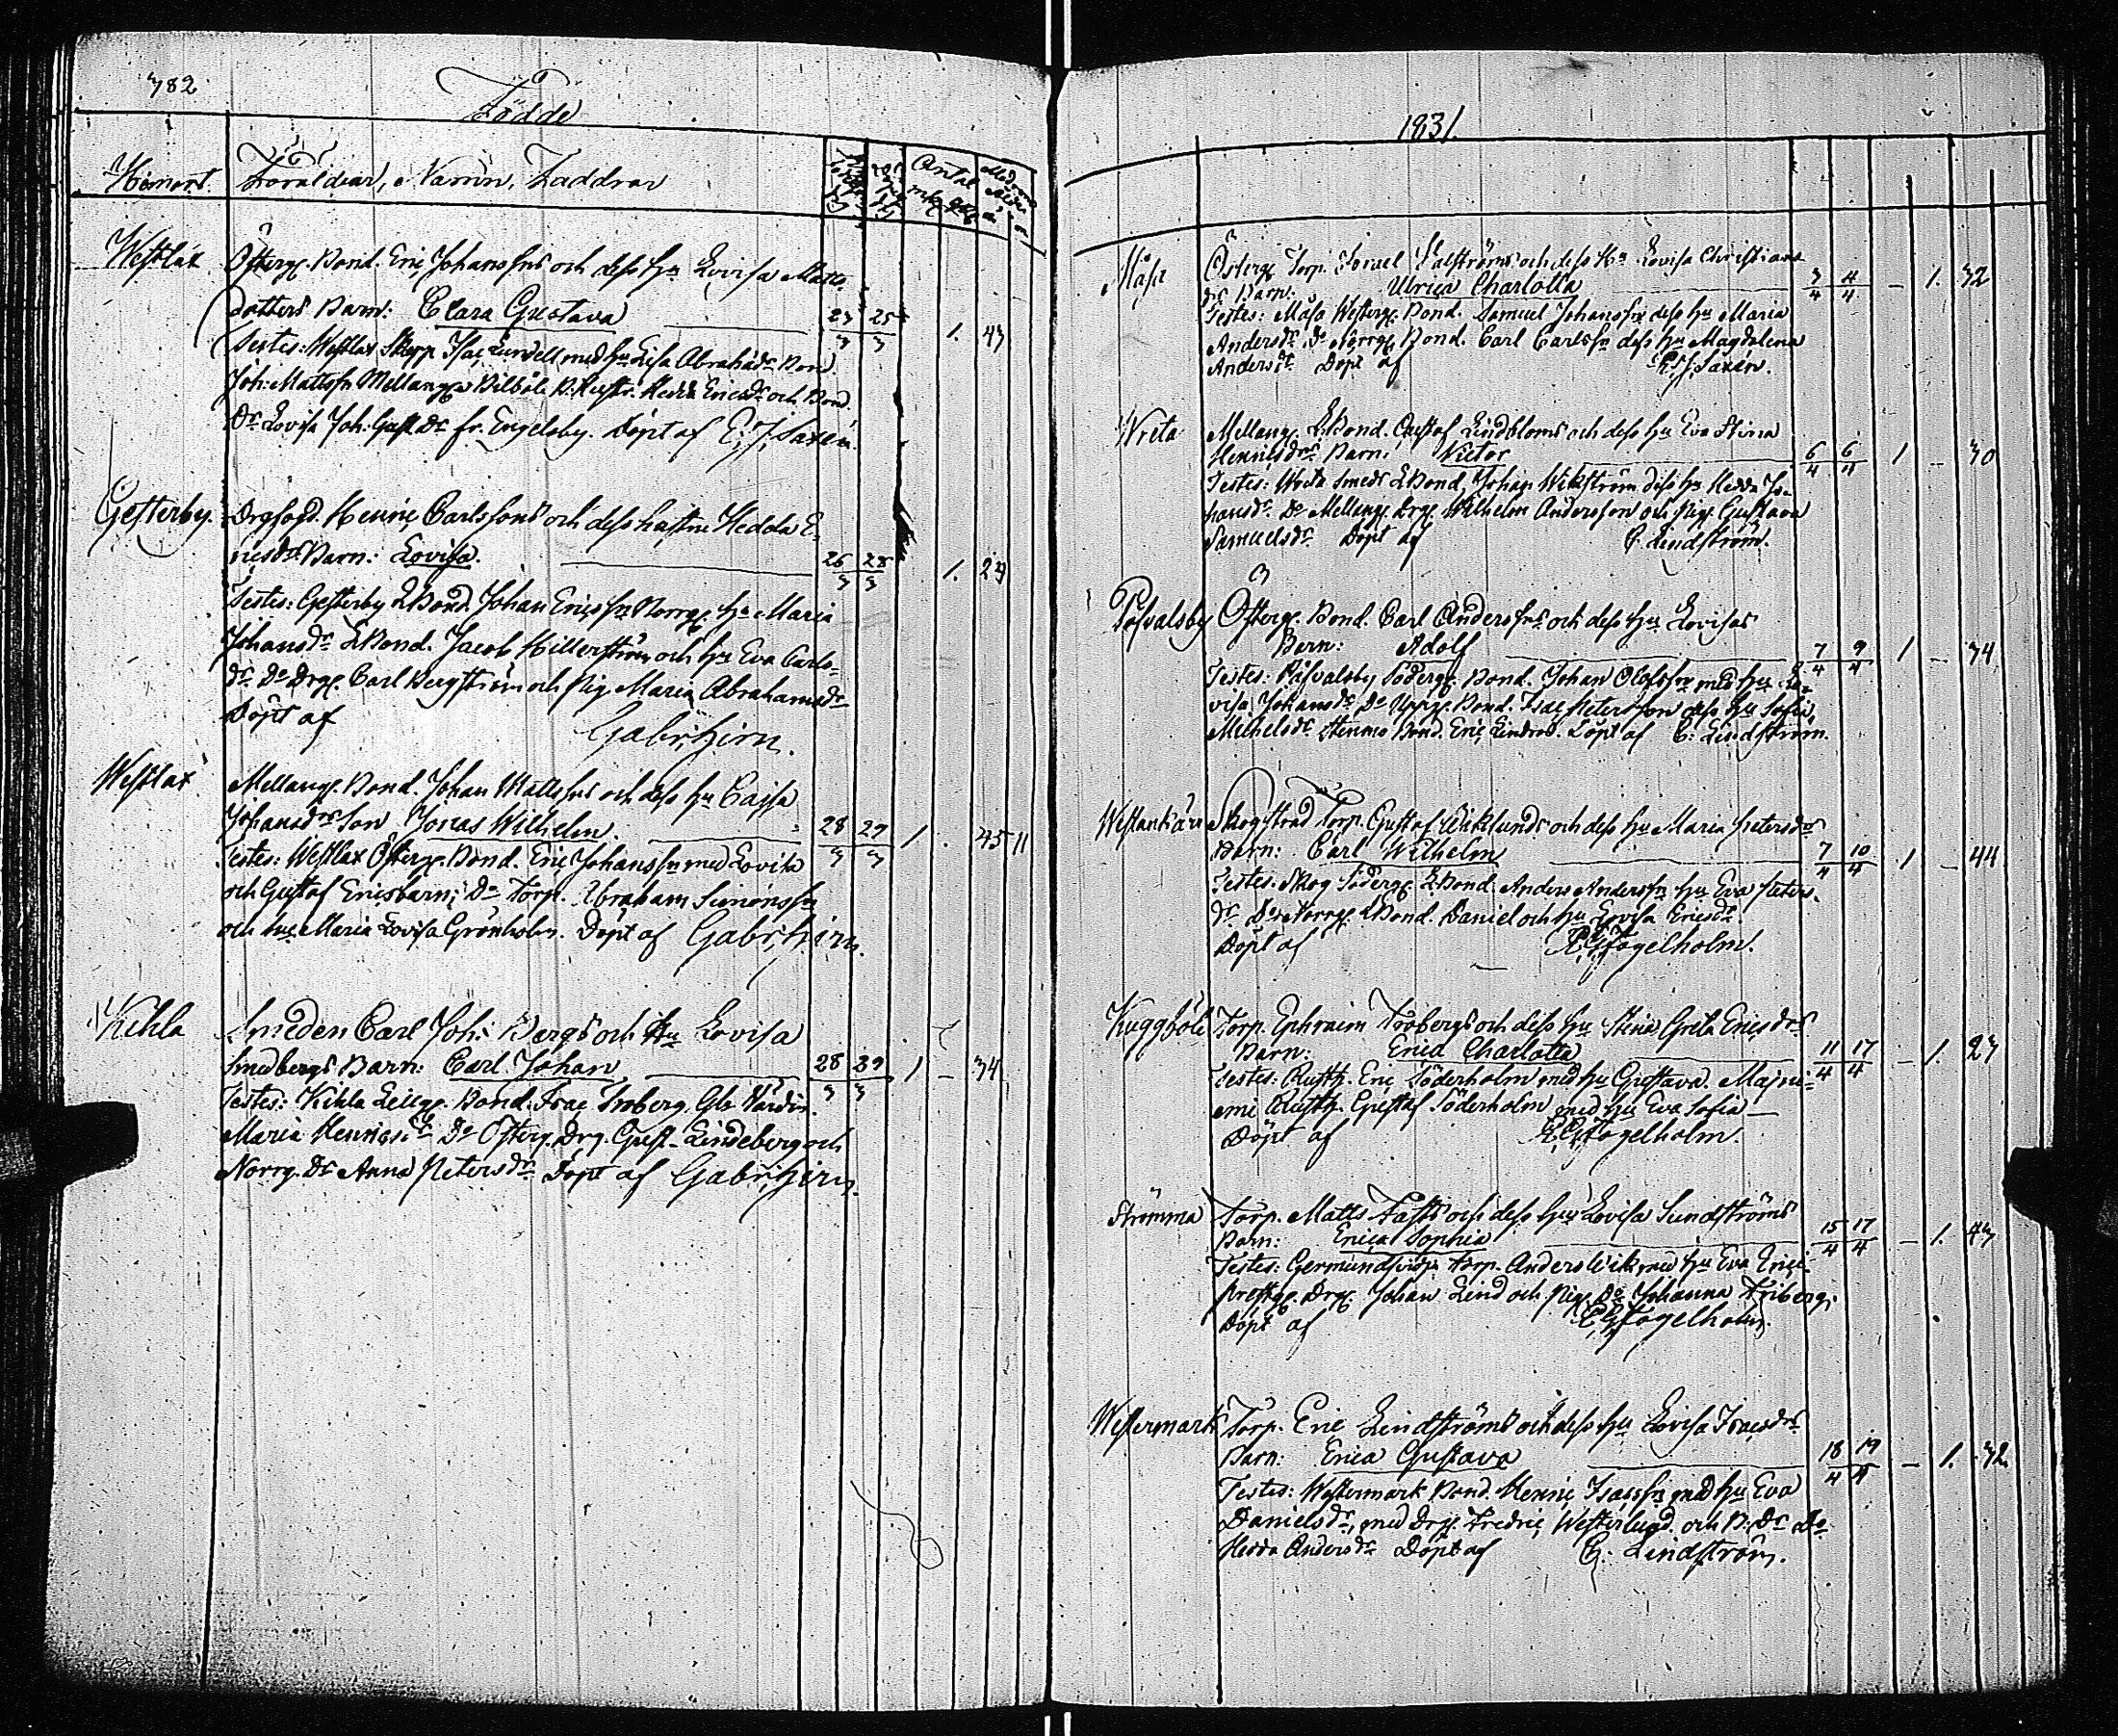 782
Födde
Hemort. Föräldrar, Namn, Faddrar
Antal
Westlax Österg. Bond. Eric Johanssons och dess hu Lovisa Matts
dotters Barn: Clara Gustava 23/3 25/3 1. 43
Testes: Westlax Skepp Isac Lundell med hu Lisa Abrahdr Bon
Joh. Mattsson Mellang. Bilböle B. Hustr. Hedda Ericsdr och Bond.
Dr Lovisa Joh. Gust. Dr fr. Engelsby. Döpt af E. J. Saxén.
Gesterby. Drgfogd. Henric Carlssons och dess hustru Hedda E-
ricsdrs Barn: Lovisa. 26/3 28/3 1. 29
Testes: Gesterby LBond. Johan Ericssn Norrg. hu Maria
Johansdr LBond. Jacob Hillerström och hu Eva Carls-
dr. Do Drg. Carl Bergström och Pig. Maria Abrahamsdr
Döpt af Gabr. Hirn.
Westlax Mellang. Bond. Johan Mattssons och dess hu Cajsa
Johansdrs Son Jonas Wilhelm. 28/3 29/3 1 . 45 11
Testes: Westlax Österg. Bond. Eric Johanssn med Lovisa
och Gustaf Ericsbarn; Do Torp. Abraham Simonssn
och hu Maria Lovisa Grönholm. Döpt af Gabr. Hirn.
Kihla Smeden Carl Joh: Bergs och Hu Lovisa
Smedbergs Barn: Carl Johan 28/3 29/3 1 - 34
Testes: Kihla Lillg. Bond. Isac Broberg. Gla Värdin.
Maria Henricsdr Do Österg. Drg. Gust. Lindeberg och
Norrg. Dr Anna Petersdr. Döpt af Gabr. Hirn.
1831.
Måsa Österg. Torp. Israel Salströms och dess Hu Lovisa Christians
drs Barn. Ulrica Charlotta 3/4 4/4 - 1. 32
Testes: Måsa Westerg. Bond. Samuel Johanssn dess hu Maria
Andersdr. Do Norrg. Bond. Carl Carlssn dess hu Magdalena
Andersdr. Döpt af E. J. Saxén.
Wreta Mellang. LBond. Gustaf Lindbloms och dess hu Eva Stina
Henricsdrs Barn: Victor 6/4 6/4 1 - 30
Testes: Wreta Smeds LBond. Johan Wikström dess hu Hedda Jo-
hansdr. Do Mellang. Drg. Wilhelm Andersson och Pig. Gustava
Samuelsdr. Döpt af C. Lindström.
Påsvalsby Österg. Bond. Carl Anderssons och dess hu Lovisas
Barn: Adolf 7/4 9/4 1 - 34
Testes: Påsvalsby Söderg. Bond. Johan Olofssn med hu Lo-
visa Johansdr Do Upg. Bond. Isac Petersson dess hu Sofia
Michelsdr Stenmo Bond. Eric Lindros. Döpt af C. Lindström.
Westankärr Skogstrad Torp. Gustaf Wiklunds och dess hu Maria Petersdrs
Barn: Carl Wilhelm 7/4 10/4 1 - 44
Testes: Skog Söderg. LBond. Anders Anderssn hu Eva Peters-
dr. Do Norrg. LBond. Daniel och hu Lovisa Ericsdr.
Döpt af K. G. Fogelholm.
Kuggböle Torp. Ephraim Frobergs och dess hu Stina Greta Ericsdrs
Barn: Erica Charlotta 11/4 17/4 - 1. 23
Testes: Rusth. Eric Söderholm med hu Gustava. Majni-
emi Rusth. Gustaf Söderholm med hu Eva Sofia
Döpt af K. G. Fogelholm.
Strömma Torp. Matts Fasts och dess hu Lovisa Sundströms
Barn: Erica Sophia 15/4 17/4 - 1. 43
Testes: Germundsvidja Torp. Anders Wik med hu Eva Eric
Prestg. Drg. Johan Lind och Pig. Do Johanna Friberg.
Döpt af K. G. Fogelholm.
Westermark Torp. Eric Lindströms och dess hu Lovisa Isacsdrs
Barn: Erica Gustava 18/4 19/4 - 1. 32
Testes: Westermark Bond. Henric Isacssn med hu Eva
Danielsdr, med Drg. Fredric Westerlund och B. Dr Do
Hedda Andersdr Döpt af C. Lindström.